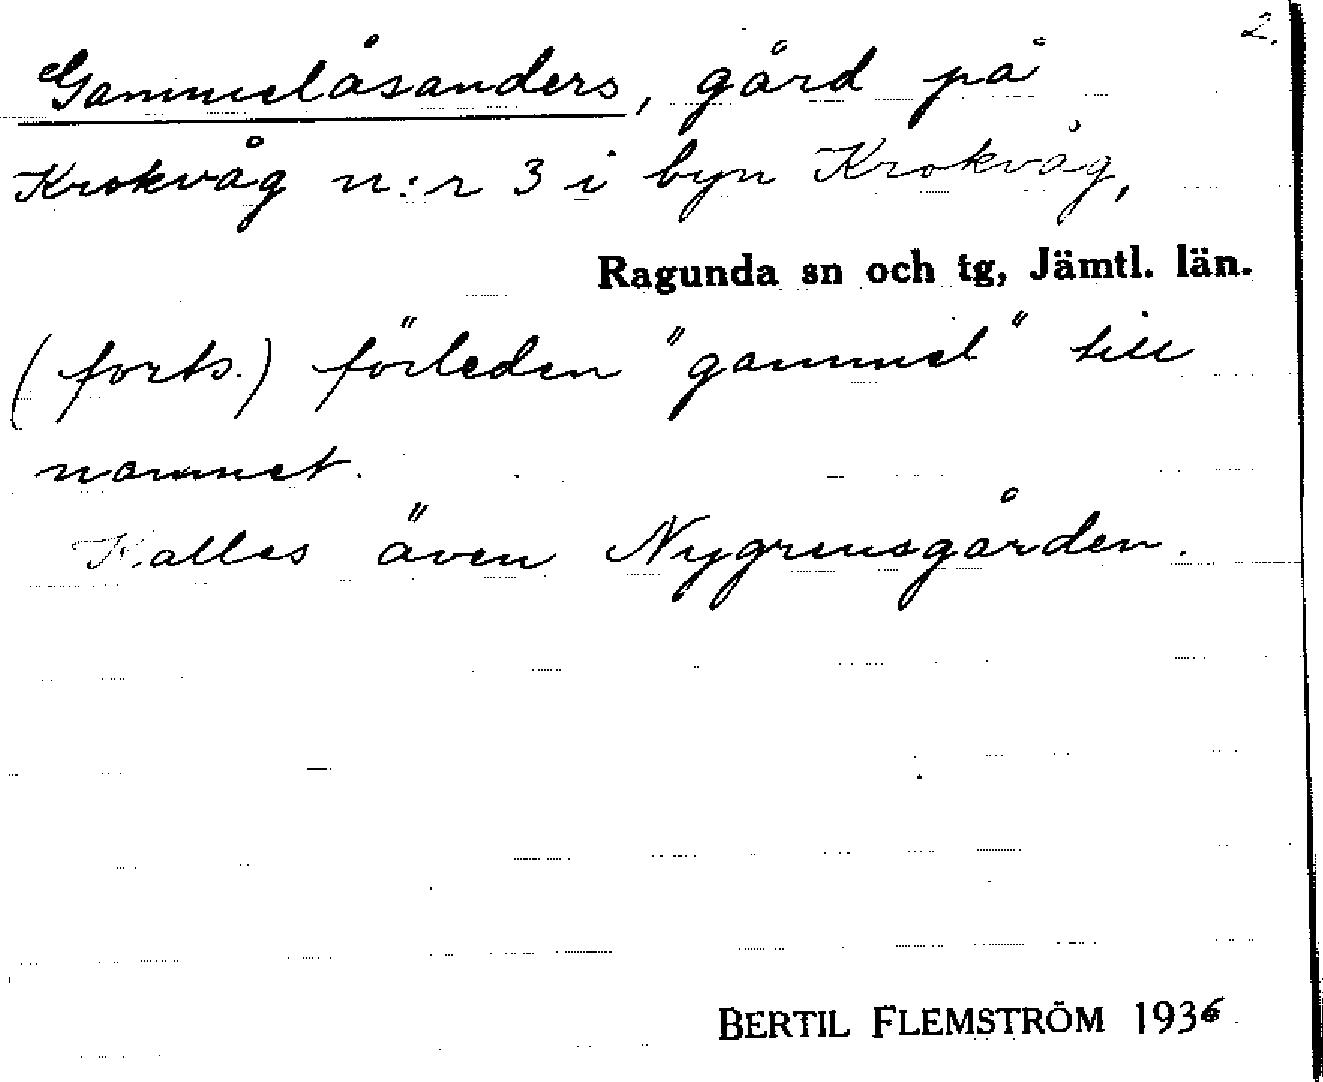 2.
Gammelåsanders, gård på
Krokvåg n:r 3 i byn Krokvåg,
Ragunda sn och tg, Jämtl. län.
(forts.) förleden "gammel" till
namnet.
Kallas även Nygrensgården.
BERTIL FLEMSTRÖM 1936